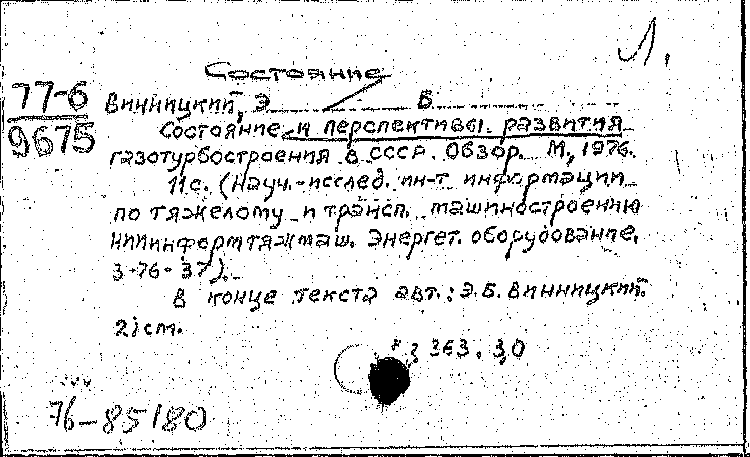 Л.
Состояние
77-6
9675
Винницкий, Э Б
Состояние и перспективы развития
газотурбостроения в СССР. Обзор. М, 1976.
11с. (Науч.-исслед. ин-т информации
по тяжелому и трансп. машиностроению
НИИинформтяжмаш. Энергет. оборудование.
3-76-37).
В конце текста авт.: Э.Б. Винницкий.
21см.
363. 30
76-85180